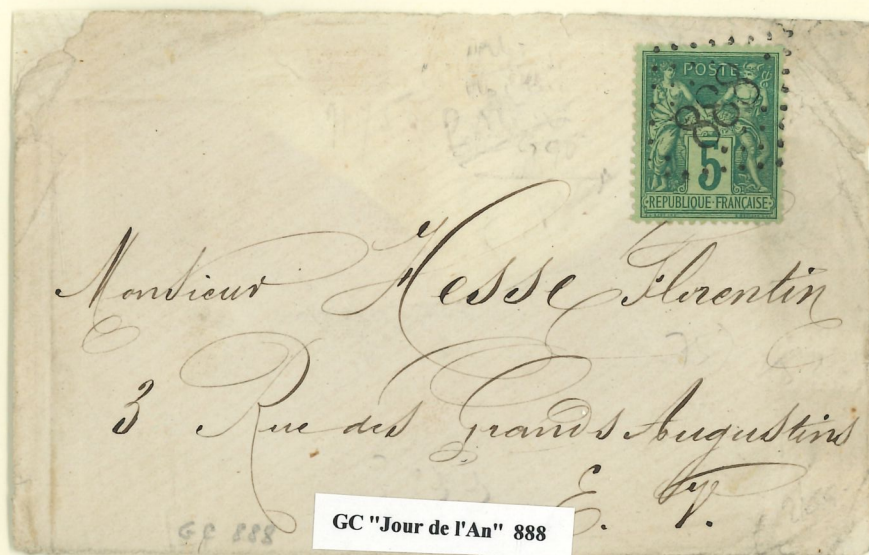 POSTE
888
5
REPUBLIQUE FRANÇAISE
Monsieur Hesse Florentin
3 Rue des Grands Augustins
E. V.
GC 888
GC "Jour de l'An" 888